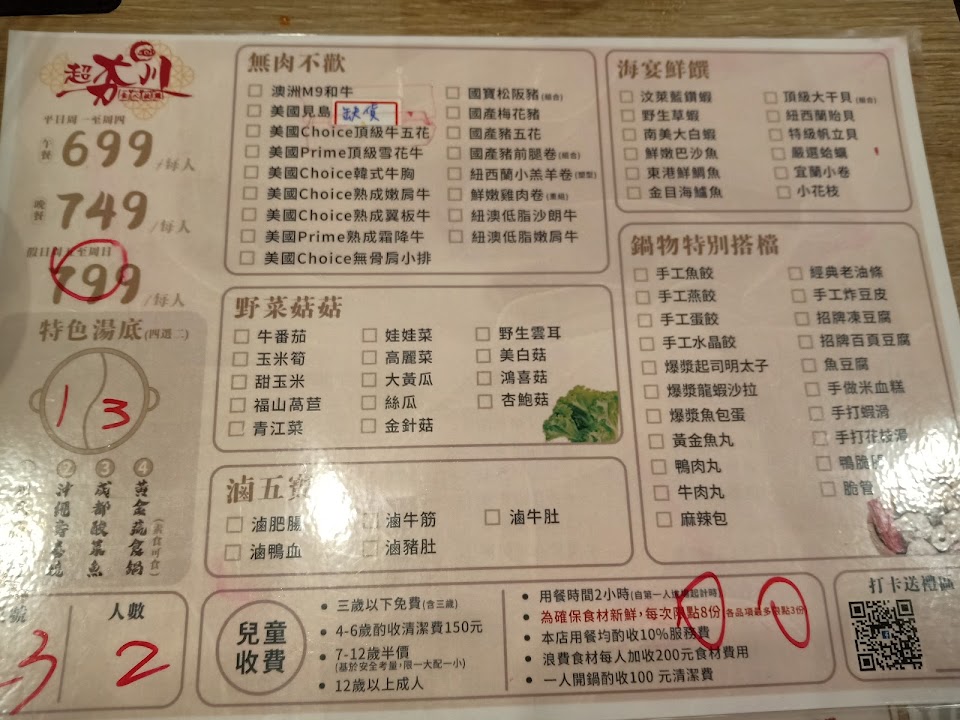 超夯川
平日周一至周四
午餐 699/每人
晚餐 749/每人
假日周五至周日
799/每人
特色湯底(四選二)
1 3
②沖繩壽喜燒
③成都酸菜魚
④黃金蔬食鍋(素食可食)
號
3
人數
2
無肉不歡
澳洲M9和牛
美國見島 缺貨
美國Choice頂級牛五花
美國Prime頂級雪花牛
美國Choice韓式牛胸
美國Choice熟成嫩肩牛
美國Choice熟成翼板牛
美國Prime熟成霜降牛
美國Choice無骨肩小排
國寶松阪豬(組合)
國產梅花豬
國產豬五花
國產豬前腿卷(組合)
紐西蘭小羔羊卷(塑型)
鮮嫩雞肉卷(重組)
紐澳低脂沙朗牛
紐澳低脂嫩肩牛
野菜菇菇
牛番茄
玉米筍
甜玉米
福山萵苣
青江菜
娃娃菜
高麗菜
大黃瓜
絲瓜
金針菇
野生雲耳
美白菇
鴻喜菇
杏鮑菇
滷五寶
滷肥腸
滷鴨血
滷牛筋
滷豬肚
滷牛肚
海宴鮮饌
汶萊藍鑽蝦
野生草蝦
南美大白蝦
鮮嫩巴沙魚
東港鮮鯛魚
金目海鱸魚
頂級大干貝(組合)
紐西蘭貽貝
特級帆立貝
嚴選蛤蠣
宜蘭小卷
小花枝
鍋物特別搭檔
手工魚餃
手工燕餃
手工蛋餃
手工水晶餃
爆漿起司明太子
爆漿龍蝦沙拉
爆漿魚包蛋
黃金魚丸
鴨肉丸
牛肉丸
麻辣包
經典老油條
手工炸豆皮
招牌凍豆腐
招牌百頁豆腐
魚豆腐
手做米血糕
手打蝦滑
手打花枝滑
脆管
兒童收費
三歲以下免費(含三歲)
4-6歲酌收清潔費150元
7-12歲半價
(基於安全考量,限一大配一小)
12歲以上成人
用餐時間2小時(自第一人進場起計時)
為確保食材新鮮,每次限點8份(各品項最多限點3份)
本店用餐均酌收10%服務費
浪費食材每人加收200元食材費用
一人開鍋酌收100 元清潔費
打卡送禮區